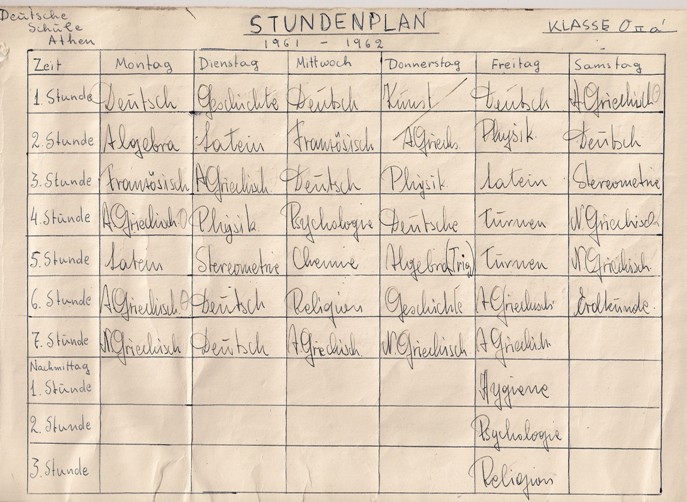 Deutsche
Schule
Athen
STUNDENPLAN
1961 - 1962
KLASSE O II a'
Zeit Montag Dienstag Mittwoch Donnerstag Freitag Samstag
1. Stunde Deutsch Geschichte Deutsch Kunst Deutsch AGriechisch
2. Stunde Algebra Latein Französisch AGriech. Physik Deutsch
3. Stunde Französisch AGriechisch Deutsch Physik Latein Stereometrie
4. Stunde AGriechisch Physik Psychologie Deutsche Turnen N.Griechisch
5. Stunde Latein Stereometrie Chemie Algebra(Trig) Turnen NGriechisch
6. Stunde AGriechisch Deutsch Religion Geschichte AGriechisch Erdkunde
7. Stunde NGriechisch Deutsch AGriechisch N.Griechisch AGriechisch
Nachmittag
1. Stunde Hygiene
2. Stunde Psychologie
3. Stunde Religion